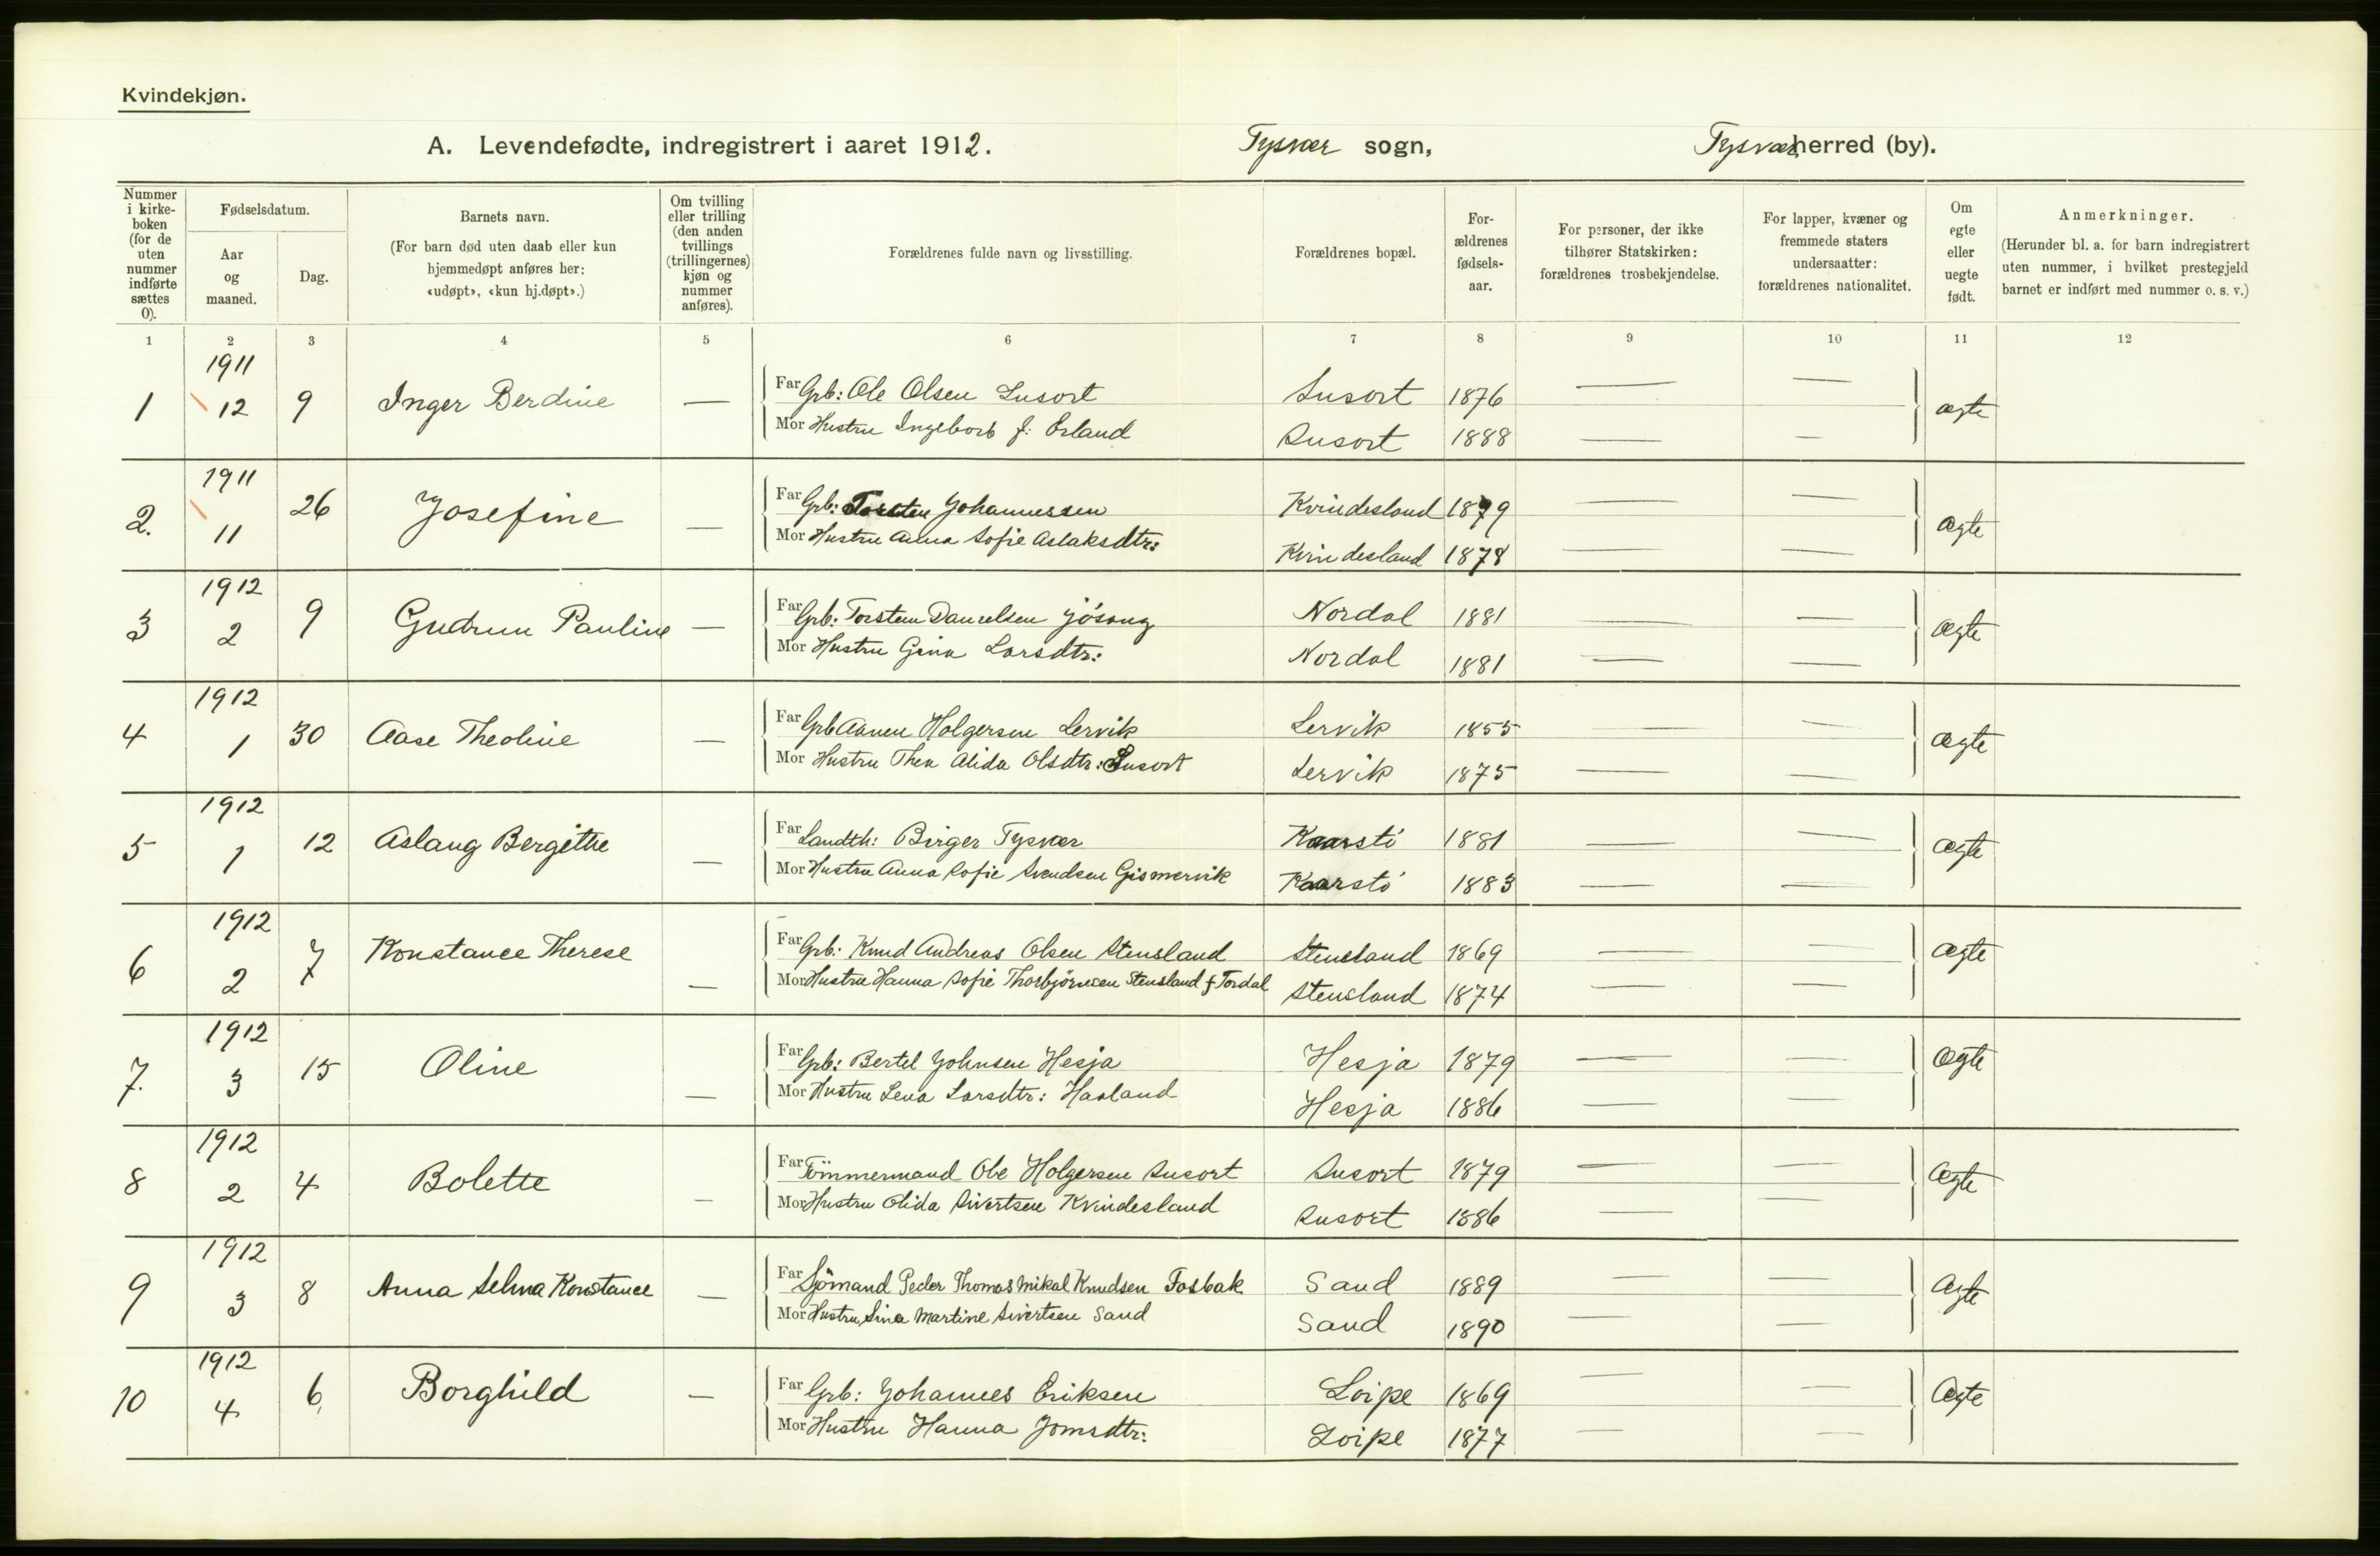 Kvindekjøn.
A. Levendefødte, indregistrert i aaret 1912. Tysvær sogn, Tysvær herred (by).
Nummer i kirke-boken (for de uten nummer indførte sættes 0).
Fødselsdatum.
Aar og maaned.
Dag.
Barnets navn.
(For barn død uten daab eller kun hjemmedøpt anføres her: «udøpt», «kun hj.døpt».)
Om tvilling eller trilling (den anden tvillings (trillingernes) kjøn og nummer anføres).
Forældrenes fulde navn og livsstilling.
Forældrenes bopæl.
For-ældrenes fødsels-aar.
For personer, der ikke tilhører Statskirken: forældrenes trosbekjendelse.
For lapper, kvæner og fremmede staters undersaatter: forældrenes nationalitet.
Om egte eller uegte født.
Anmerkninger.
(Herunder bl. a. for barn indregistrert uten nummer, i hvilket prestegjeld barnet er indført med nummer o. s. v.)
1 2 3 4 5 6 7 8 9 10 11 12
1911
1 12 9 Inger Berdine — Far Grb: Ole Olsen Susort Susort 1876 — — ægte
Mor Hustru Ingeborb f: Erland Susort 1888 — —
1911
2. 11 26 Josefine — Far Grb: Torsten Johannessen Kvindesland 1879 — — ægte
Mor Hustru Anna Sofie Aslaksdtr: Kvindesland 1878 — —
1912
3 2 9 Gudrun Pauline — Far Grb: Torstein Danielsen Jösang Nordal 1881 — — ægte
Mor Hustru Gina Larsdtr: Nordal 1881 — —
1912
4 1 30 Aase Theoline — Far Grb Aanen Holgersen Lervik Lervik 1855 — — ægte
Mor Hustru Thea Alida Olsdtr: Susort Lervik 1875 — —
1912
5 1 12 Aslaug Bergithe — Far Landth: Birger Tysvær Kaarstö 1881 — — ægte
Mor Hustru Anna Sofie Svendsen Gismervik Kaarstö 1883 — —
1912
6 2 7 Konstance Therese — Far Grb: Knud Andreas Olsen Stensland Stensland 1869 — — ægte
Mor Hustru Hanna Sofie Thorbjörnsen Stensland f Tordal Stensland 1874 — —
1912
7. 3 15 Oline — Far Grb: Bertel Johnsen Hesja Hesja 1879 — — ægte
Mor Hustru Lena Larsdtr: Haaland Hesja 1886 — —
1912
8 2 4 Bolette — Far Tömmermand Ole Holgersen Susort Susort 1879 — — ægte
Mor Hustru Olida Sivertsen Kvindesland Susort 1886 — —
1912
9 3 8 Anna Selma Konstance — Far Sjömand Peder Thomas Mikal Knudsen Fosbak Sand 1889 — — ægte
Mor Hustru Sina Martine Sivertsen Sand Sand 1890 — —
1912
10 4 6, Borghild — Far Grb: Johannes Eriksen Loipe 1869 — — ægte
Mor Hustru Hanna Jonsdtr: Loipe 1877 — —